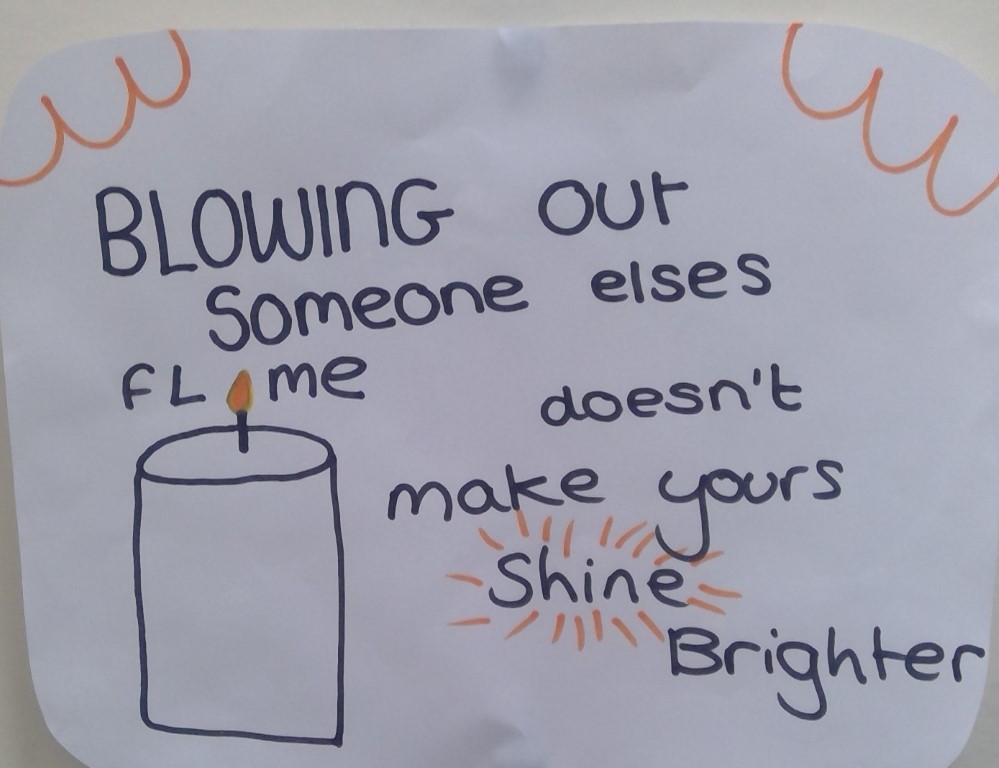 BLOWING OUT
Someone elses
FLame
doesn't
make yours
Shine
Brighter